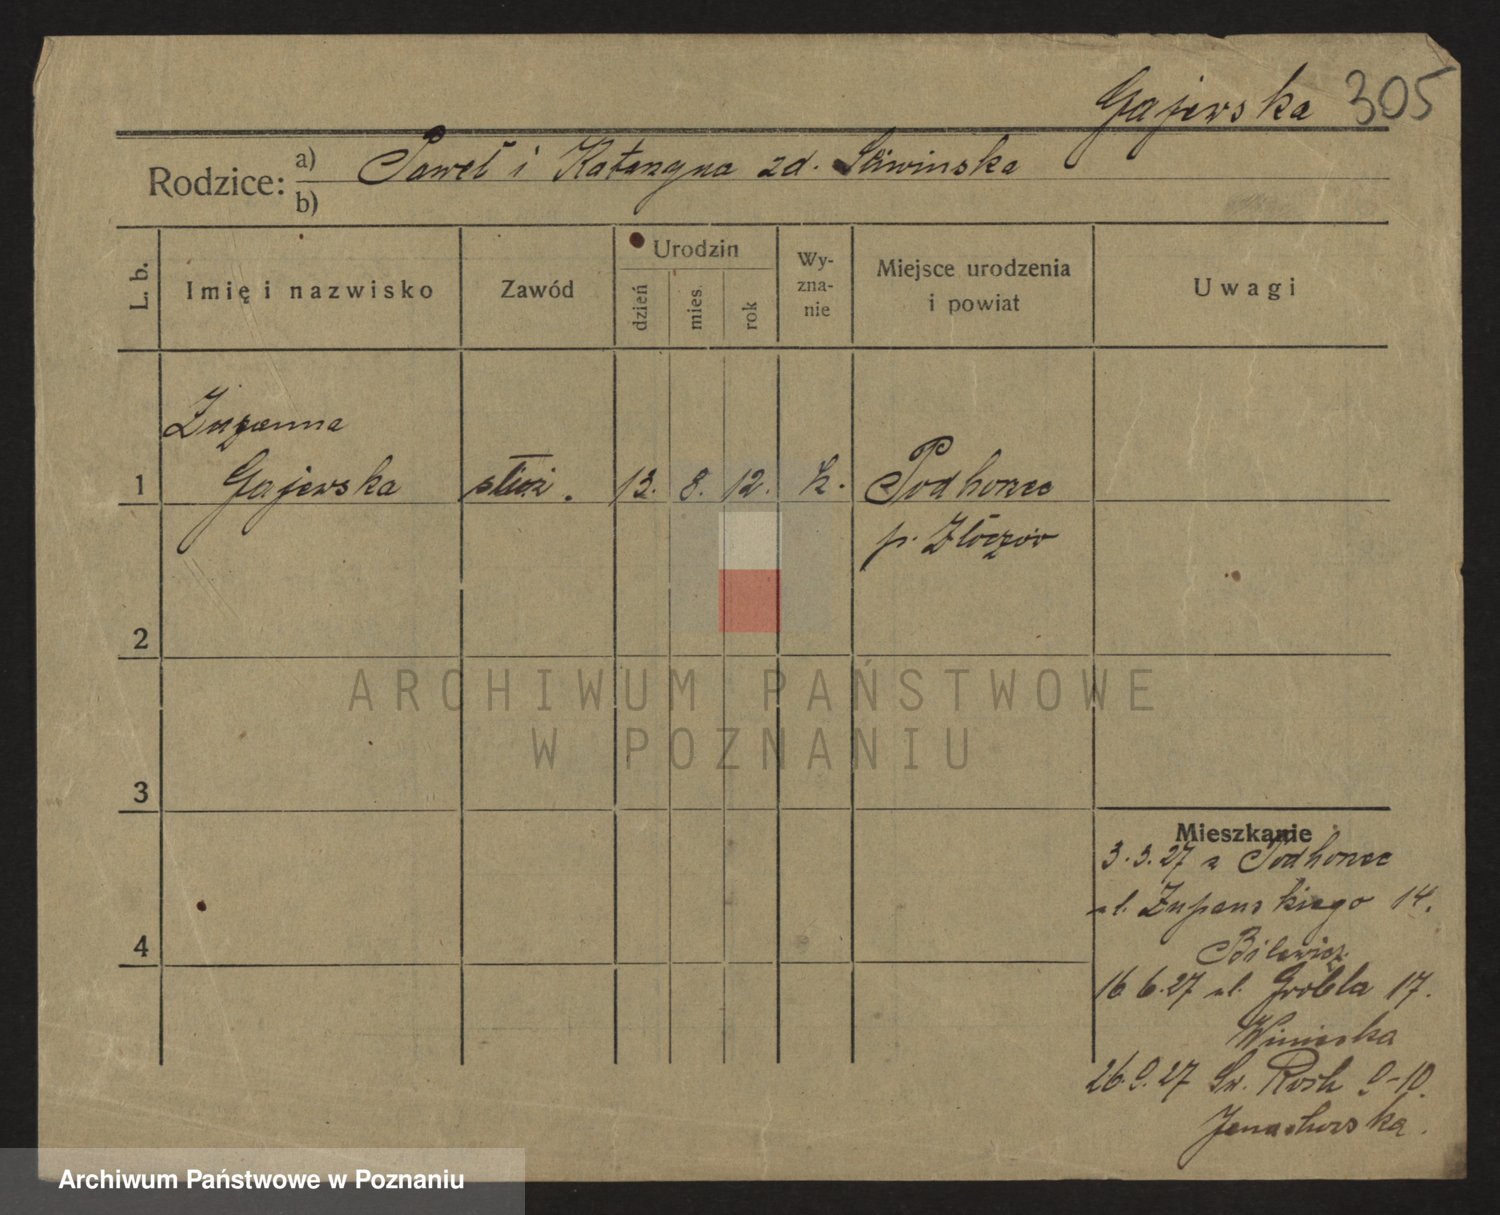 Gajewska 305
Rodzice: a) Paweł i Katarzyna zd. Śliwinska
b)
L. b.
Imię i nazwisko
Zawód
Urodzin
dzień
mies.
rok
Wy-
zna-
nie
Miejsce urodzenia
i powiat
Uwagi
Zuzanna
1 Gajewska służ. 13. 8. 12. k. Podhorce
p. Złoczów
2
ARCHIWUM PAŃSTWOWE
W POZNANIU
3
Mieszkanie
3.3.27 z Podhorce
ul. Zupanskiego 14.
Bilewicz
4
16.6.27 ul. Grobla 17.
26.9.27 Św. Roch 9-10.
Archiwum Państwowe w Poznaniu